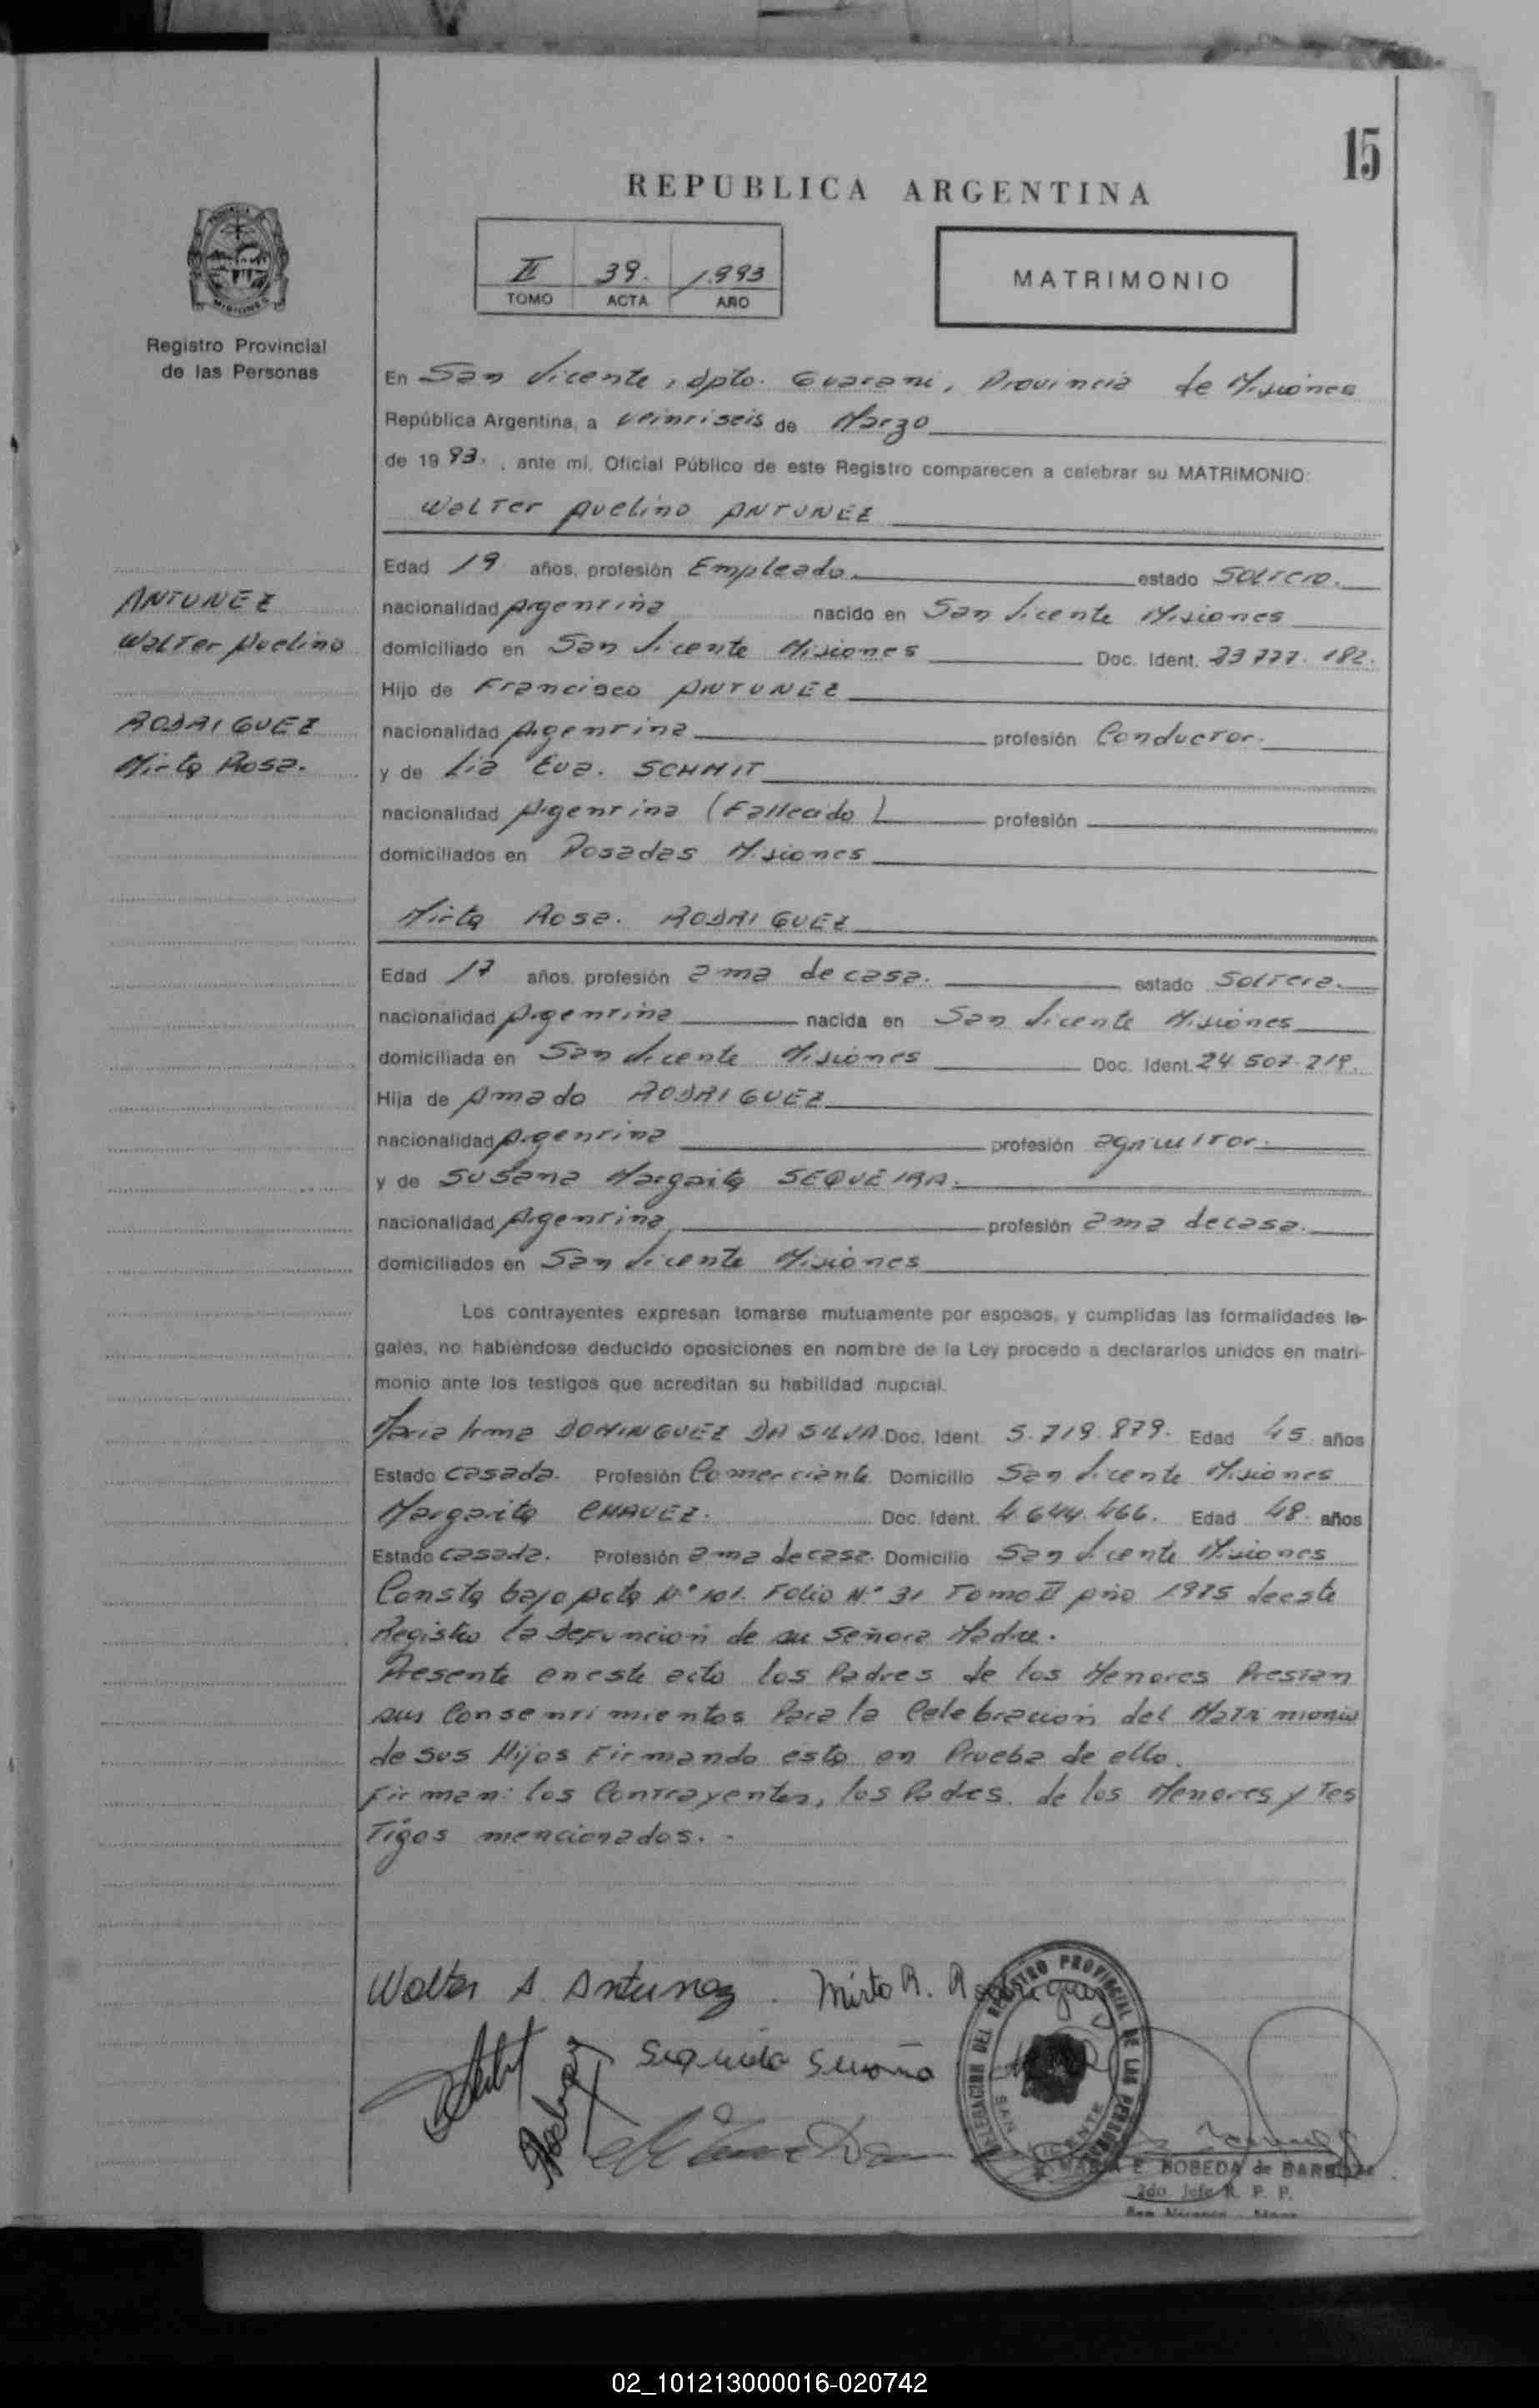 15
REPUBLICA ARGENTINA
II 39. 1.993
TOMO ACTA AÑO
MATRIMONIO
Registro Provincial
de las Personas
En San Vicente, dpto. Guarani, Provincia de Misiones
República Argentina, a veintiseis de Marzo
de 19 93. , ante mí, Oficial Público de este Registro comparecen a celebrar su MATRIMONIO:
Walter Avelino ANTUNEZ
Edad 19 años, profesión Empleado. estado Soltero.
ANTUNEZ
nacionalidad Argentina nacido en San Vicente Misiones
Walter Avelino
domiciliado en San Vicente Misiones Doc. Ident. 23 777. 182.
Hijo de Francisco ANTUNEZ
RODRIGUEZ
nacionalidad Argentina profesión Conductor.
Mirta Rosa.
y de Lia Eva. SCHMIT
nacionalidad Argentina (Fallecido) profesión
domiciliados en Posadas Misiones
Mirta Rosa. RODRIGUEZ
Edad 17 años, profesión ama de casa. estado Soltera.
nacionalidad Argentina nacida en San Vicente Misiones
domiciliada en San Vicente Misiones Doc. Ident. 24 507. 219.
Hija de Amado RODRIGUEZ
nacionalidad Argentina profesión agricultor.
y de Susana Margarita SEQUEIRA.
nacionalidad Argentina profesión ama de casa.
domiciliados en San Vicente Misiones
Los contrayentes expresan tomarse mutuamente por esposos, y cumplidas las formalidades le-
gales, no habiéndose deducido oposiciones en nombre de la Ley procedo a declararlos unidos en matri-
monio ante los testigos que acreditan su habilidad nupcial.
Maria Irma DOMINGUEZ DA SILVA Doc. Ident. 5. 719. 879. Edad 45 años
Estado Casada. Profesión Comerciante Domicilio San Vicente Misiones
Margarita CHAVEZ. Doc. Ident. 4. 644. 466. Edad 48. años
Estado Casada. Profesión ama de casa. Domicilio San Vicente Misiones
Consta bajo Acta N° 101. Folio N.° 31 Tomo II Año 1985 de este
Registro la defuncion de su Señora Madre.
Presente en este acto los Padres de los Menores Prestan
sus Consentimientos Para la Celebracion del Matrimonio
de sus Hijos Firmando esto en Prueba de ello.
Firman: los Contrayentes, los Padres. de los Menores y Tes
tigos mencionados. -
Walter A Antunez . Mirta R. Rodriguez
DELEGACION DEL REGISTRO PROVINCIAL DE LAS PERSONAS
SAN VICENTE
MARIA E BOBEDA de BARBOZA
2do Jefe R. P. P.
02_101213000016-020742